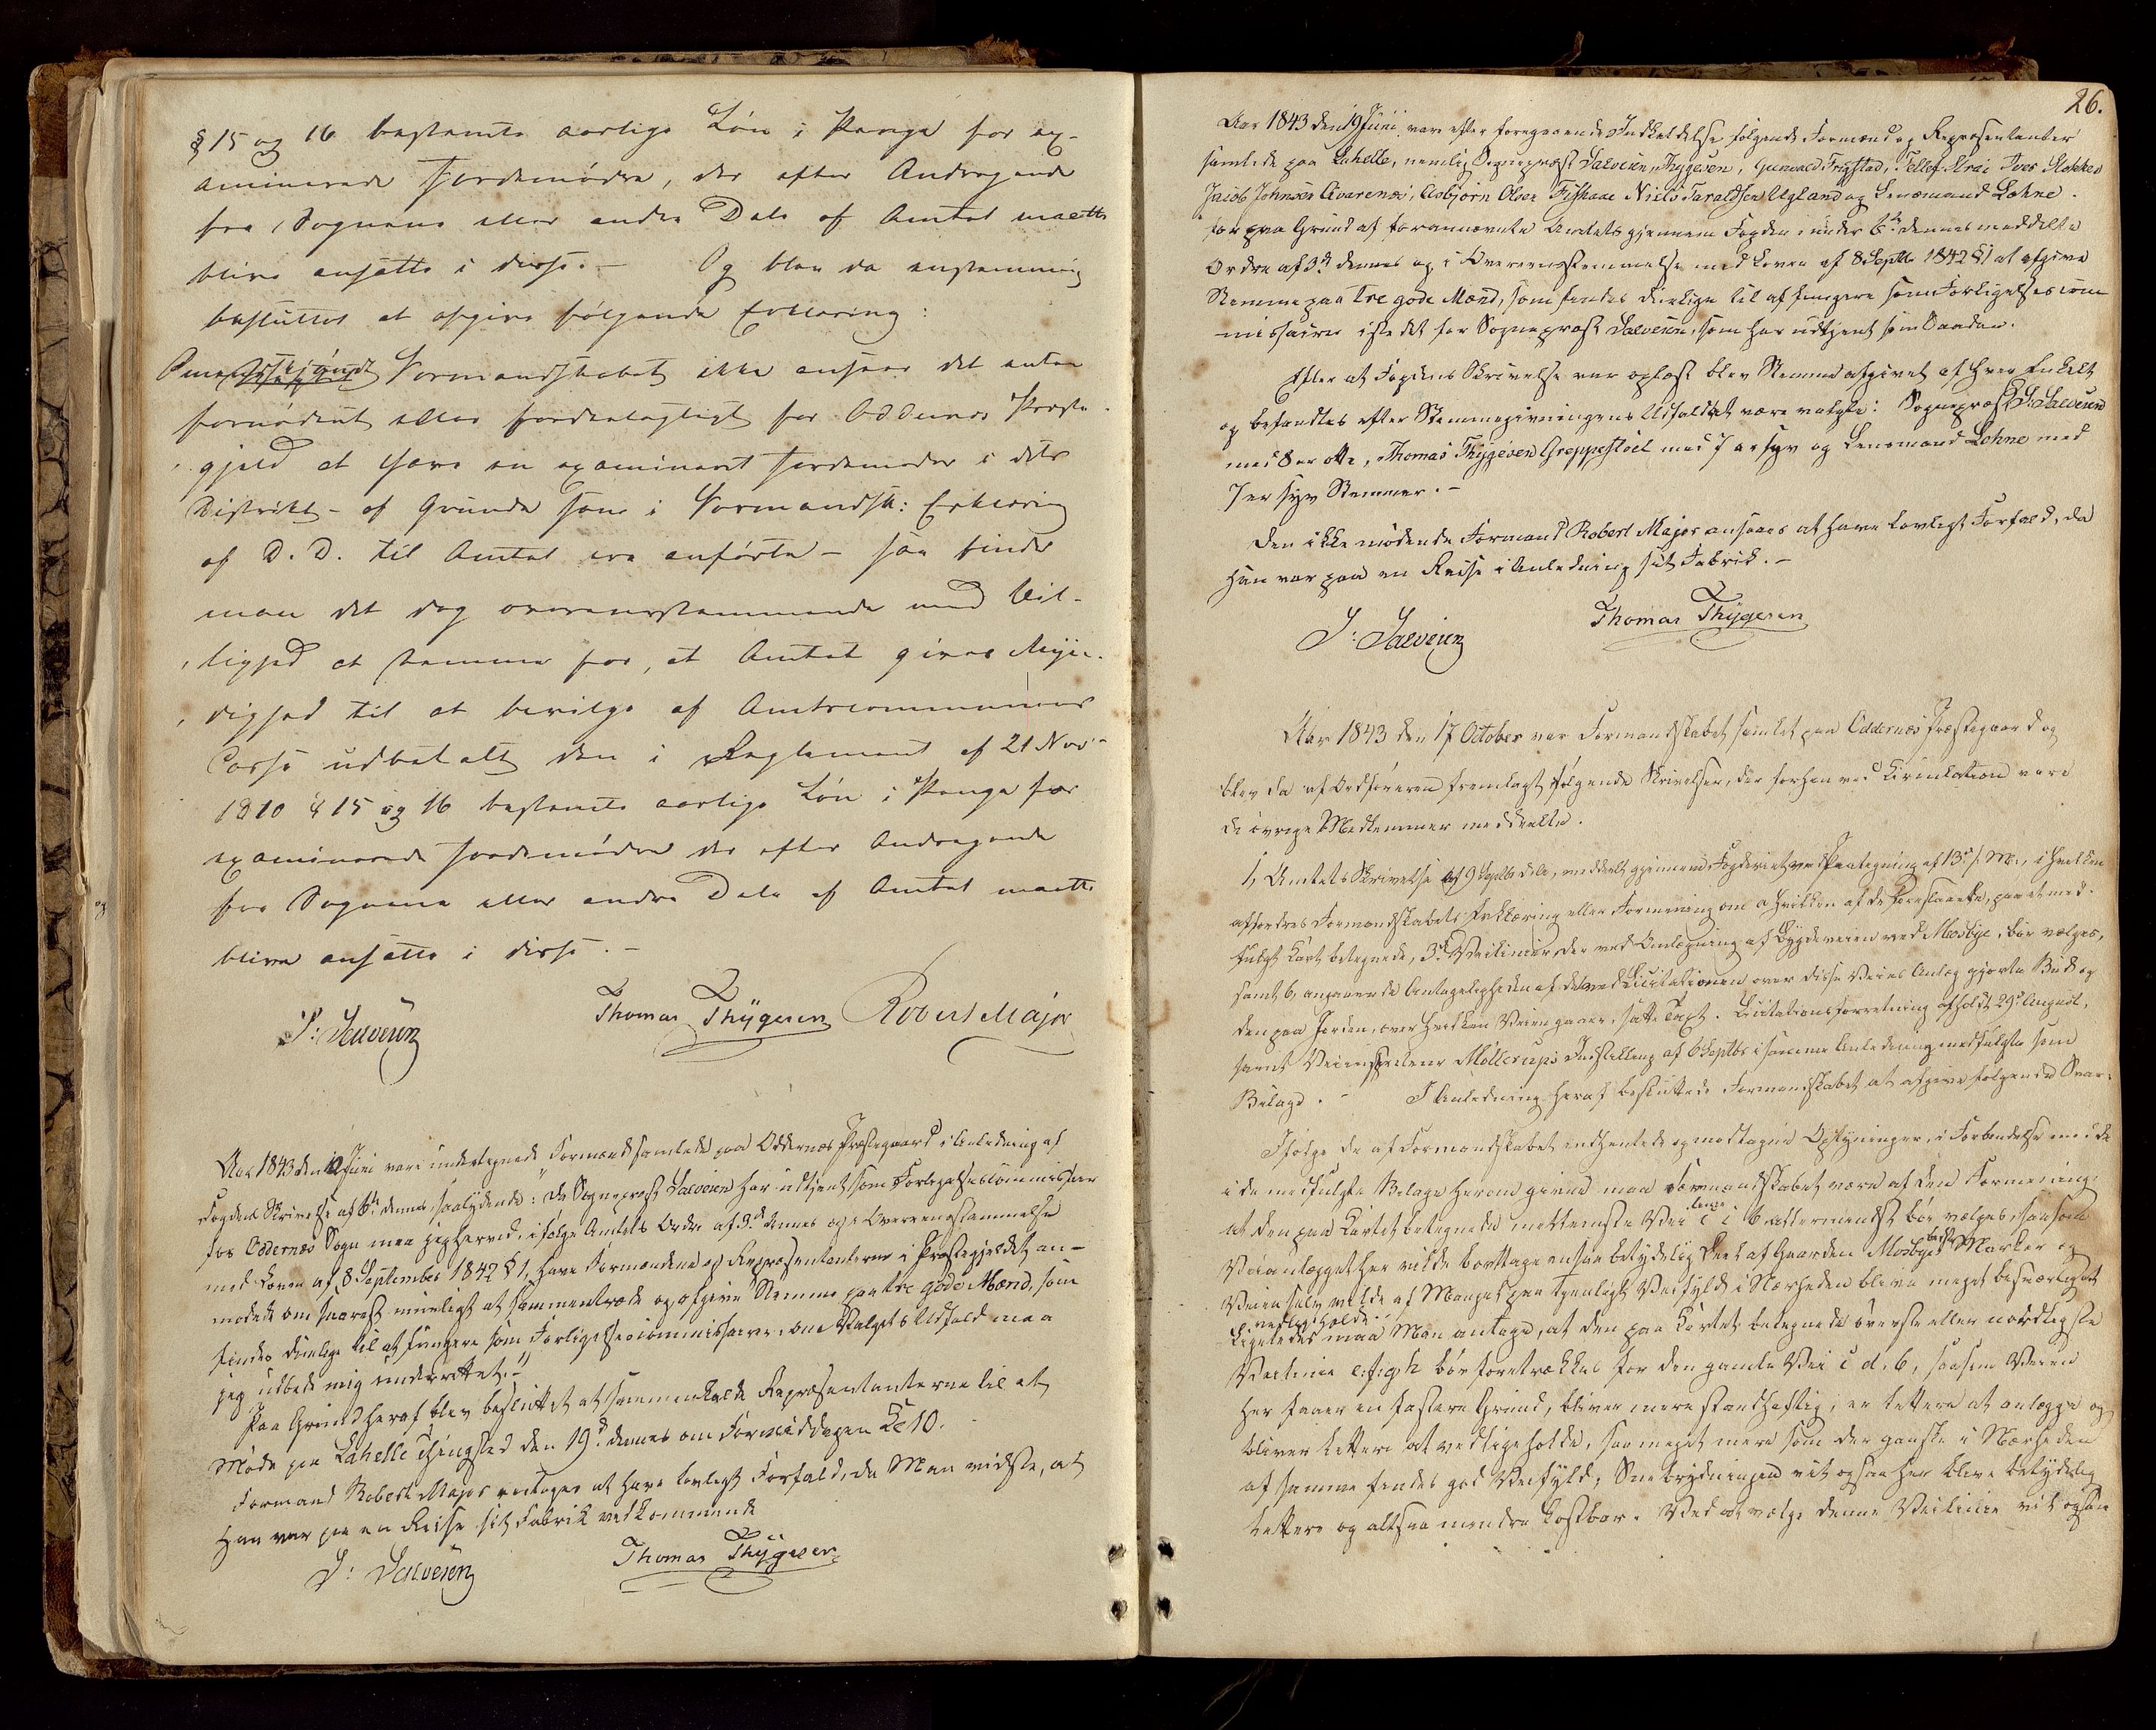 § 15 og 16 bestemte aarlige Løn i Penge for ex-
aminerede Jordemødre, der efter Andragende
fra Sognene eller andre Dele af Amtet maatte
blive ansatte i disse. – Og blev da enstemmig
besluttet at afgive følgende Erklæring:
Omendskjøndt Formandskabet ikke anseer det enten
fornødent eller fordeelagtigt for Oddernes Præste-
gjeld at have en examineret Jordemoder i dets
Distrikt – af Grunde som i Formandsk: Erklæring
af D. D. til Amtet ere anførte – saa finder
man det dog overensstemmende med Bil-
lighed at stemme for, at Amtet gives Myn-
dighed til at bevilge af Amtscommunens
Casse udbetalt den i Reglement af 21 Novr
1810 § 15 og 16 bestemte aarlige Løn i Penge for
examinerede Jordemødre der efter Andragende
fra Sognene eller andre Dele af Amtet maatte
blive ansatte i disse. –
S: Salvesen Thomas Thygesen Robert Major
Aar 1843 den Juni vare undertegnede Formænd samlede paa Oddernes Præstegaard i Anledning af
Fogdens Skrivelse af 6te dennes saalydende: "Da Sognepræst Salvesen har udtjent som Forligelsescommissair
for Oddernes Sogn maa jeg herved, ifølge Amtets Ordre af 3d dennes og i Overeensstemmelse
med Loven af 8 September 1842 § 1, have Formændene og Repræsentanterne i Præstegjeldet an-
modede om snarest mueligt at sammentræde og afgive Stemme paa tre gode Mænd, som
findes duelige til at fungere som Forligelsescommissairer, om Valgets Udfald maa
jeg udbede mig underrettet."
Paa Grund heraf blev besluttet at sammenkalde Repræsentanterne til et
Møde paa Lahelle Thingsted den 19d dennes om Formiddagen Kl 10.
Formand Robert Major antages at have lovligt Forfald, da Man vidste, at
han var paa en Reise sit Fabrik vedkommende
S: Salvesen Thomas Thygesen
26.
Aar 1843 den 19 Juni vare efter foregaaende Indkaldelse følgende Formænd og Repræsentanter
samlede paa Lahelle, nemlig Sognepræst Salvesen, Thygesen, Gunvald Frigstad, Tellef Strai Iver Stokken
Jacob Johnsen Qvarenes, Asbjørn Olsen Fiskaae Niels Taraldsen Ugland og Lensmand Lohne.
for paa Grund af forannævnte Amtets gjennem Fogden under 6te dennes meddelte
Ordre af 3d dennes og i Overeensstemmelse med Loven af 8 Septbr 1842 § 1 at afgive
Stemme paa tre gode Mænd, som findes duelige til at fungere som Forligelsescom-
missairer istedet for Sognepræst Salvesen, som har udtjent som Saadan.
Efter at Fogdens Skrivelse var oplæst blev Stemme afgivet af hver Enkelt
og befandtes efter Stemmegivningens Udfald at være valgte: Sognepræst S: Salvesen
med 8 er otte, Thomas Thygesen Greppestøel med 7 er syv og Lensmand Lohne med
7 er syv Stemmer. –
Den ikke mødende Formand Robert Major ansaaes at have lovligt Forfald, da
han var paa en Reise i Anledning sit Fabrik. –
S: Salvesen Thomas Thygesen
Aar 1843 den 17 October var Formandskabet samlet paa Oddernes Præstegaard og
blev da af Ordføreren fremlagt følgende Skrivelser, der forhen ved Circulation vare
de øvrige Medlemmer meddeelte.
1, Amtets Skrivelse af 9 Septbr d.A., meddeelt gjennem Fogderiet ved Paategning af 13d s. M., i hvilken
affordres Formandskabets Erklæring eller Formening om a hvilken af de foreslaaede, paa et med-
fulgt Kart betegnede, 3de Veilinier, der ved Anlægning af Bygdeveien ved Mosbye, bør vælges,
samt b, angaaende Antageligheden af det ved Licitationen over disse Veies Anlæg gjorte Bud og
den paa Jorden, over hvilken Veien gaaer, satte Taxt. Licitationsforretning afholdt 29d August,
samt Veiinspecteur Møllerups Indstilling af 6 Septbr i samme Anledning medfulgte som
Bilage. – I Anledning heraf besluttede Formandskabet at afgive følgende Svar:
Ifølge de af Formandskabet indhentede og modtagne Oplysninger, i Forbindelse med de
i de medfulgte Bilage herom givne maa Formandskabet være af den Formening
at den paa Kartet betegnede mellemste Vei linie c i b allermindst bør vælges, saasom
Veianlægget her vilde borttage en saa betydelig Deel af Gaarden Mosbyes bedste Marker og
Veien selv vilde af Mangel paa tjenligt Veifyld i Nærheden blive meget besværlig at
vedligeholde.
Ligeledes maa Man antage, at den paa Kartet betegnede øverste eller nordligste
Veilinie e.f.g.h bør foretrækkes for den gamle Vei c d. b, saasom Veien
her faaer en fastere Grund, bliver mere standhaftig, er lettere at anlægge og
bliver lettere at vedligeholde, saa meget mere som der ganske i Nærheden
af samme findes god Veifyld; Snebrydningen vil ogsaa her blive betydelig
lettere og altsaa mindre kostbar. Ved at vælge denne Veilinie vil ogsaa